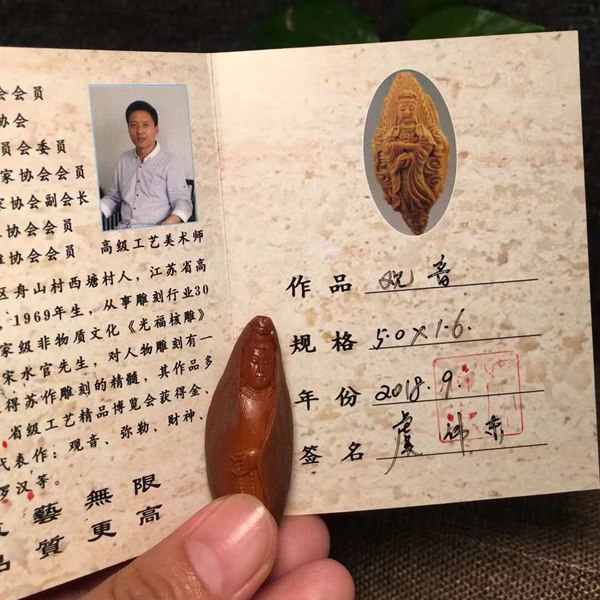 会会员
协会
员会委员
家协会会员
家协会副会长
协会会员
雕协会会员
高级工艺美术师
区舟山村西塘村人，江苏省高
，1969年生，从事雕刻行业30
家级非物质文化《光福核雕》
宋水官先生，对人物雕刻有一
得苏作雕刻的精髓，其作品多
省级工艺精品博览会获得金、
代表作：观音、弥勒、财神、
罗汉等。
藝無限
品質更高
作品 观音
规格 5.0×1.6.
年份 2018.9.
签名